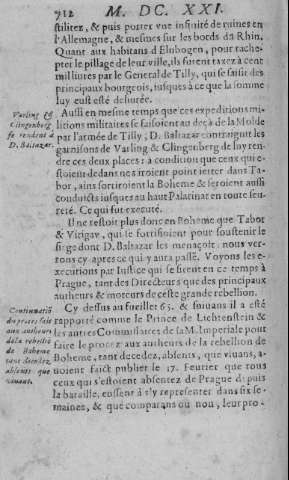 712 M. DC. XXI.
stilitez, & puis porter vne infinité de ruines en
l'Allemagne, & mesmes sur les bords du Rhin,
Quant aux habitans d'Elnbogen, pour rache-
pter le pillage de leur ville, ils furent taxez à cent
mil liures par le General de Tilly, qui se saisit des
principaux bourgeois, iusques à ce que la somme
luy eust esté deliurée.
Varling &
Clingenberg
se rendent à
D. Baltazar.
Aussi en mesme temps que ces expeditions mi-
litaires se faisoient au deçà de la Molde
par l'armée de Tilly; D. Baltazar contraignit les
garnisons de Varling & Clingenberg de luy ren-
dre ces deux places: à condition que ceux qui e-
stoient dedans ne siroient point ietter dans Ta-
bor, ains sortiroient la Boheme & seroient aussi
conduicts iusques au haut Palatinat en toute seu-
reté. Ce qui fut executé.
Il ne restoit plus donc en Boheme que Tabor
& Vitigav, qui se fortifioient pour soustenir le
siege dont D. Baltasar les menaçoit: nous ver-
rons cy apres ce qui y aura passé. Voyons les e-
xecutions par Iustice qui se firent en ce temps à
Prague, tant des Directeurs que des principaux
autheurs & moteurs de ceste grande rebellion.
Continuatiõ
du procez fait
aux autheurs
de la rebelliõ
de Boheme
tant decedez,
absents que
viuans.
Cy dessus au fueillet 65. & suiuans il a esté
rapporté comme le Prince de Lichtenstein &
les autres Commissaires de sa M. Imperiale pour
faire le procez aux autheurs de la rebellion de
Boheme, tant decedez, absents, que viuans, a-
uoient faict publier le 17. Feurier que tous
ceux qui s'estoient absentez de Prague depuis
la bataille, eussent à s'y representer dans six se-
maines, & que comparans ou non, leur pro-